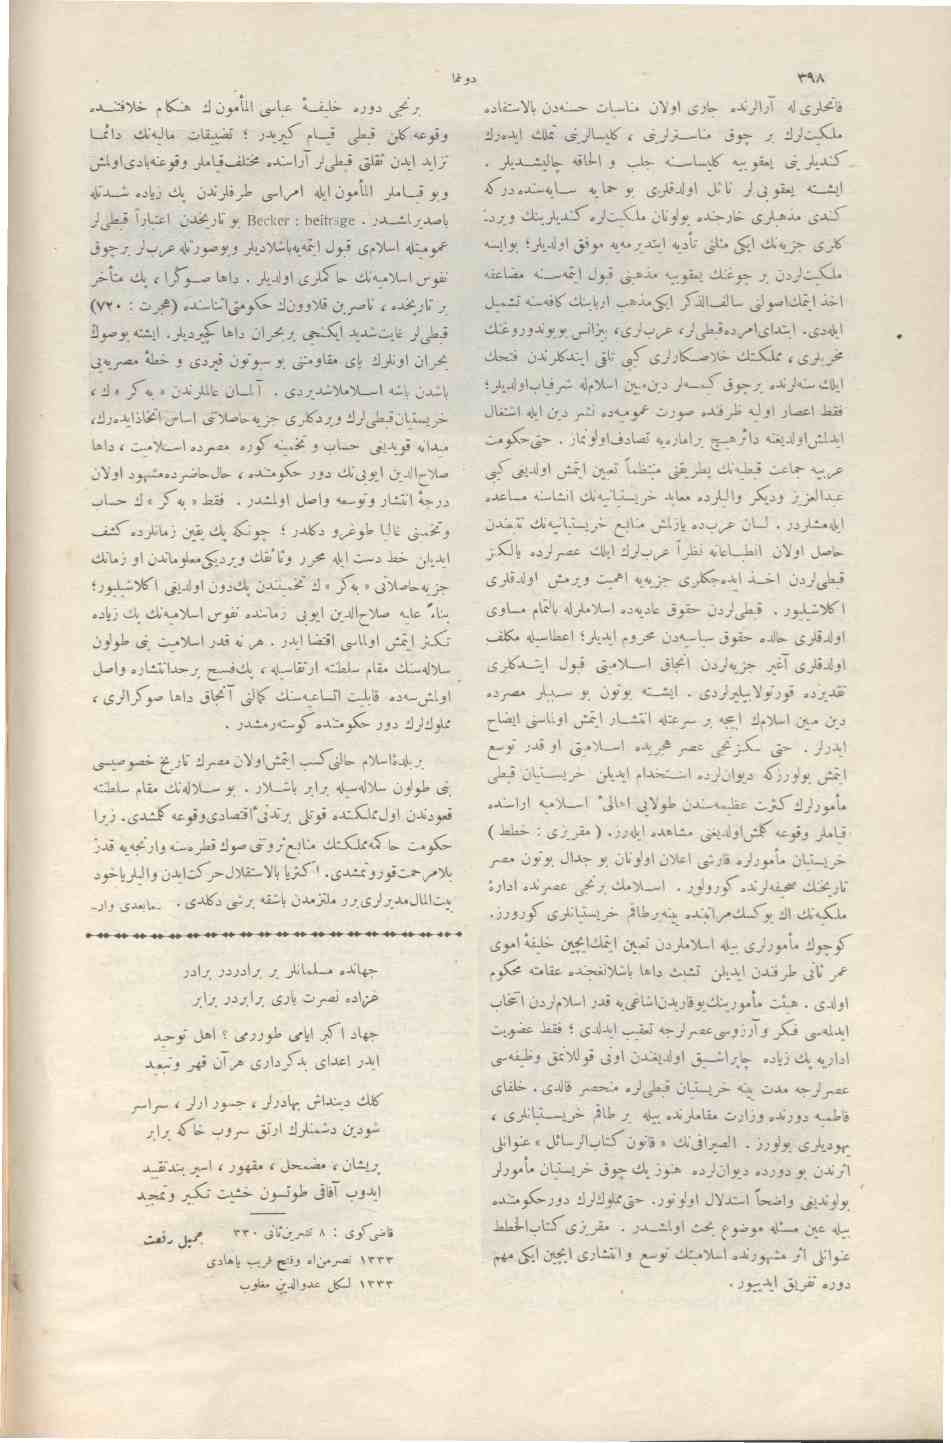 ٣٩٨
دونما
فاتحلری له آرالرنده جاری اولان مناسبات حسنه‌دن بالاستفاده
ملکیت‌لرك بر چوق مناسترلرینی ، کلیسالرینی تملك ایده‌رك
کندیلرینی یعقوبیه کلیساسنه جلب و الحاقه چالیشدیلر .
ایشته یعقوبی لر نائل اولدقلری بو حمایه سایه‌سنده‌درکه
کندی مذهبلری خارجنده بولونان ملکیت‌لره کندیلرینك ویردکـ
کلری جزیه‌نك ایکی مثلنی تأدیه ایتدیرمه‌یه موفق اولدیلر ؛ بوایسه
ملکیت‌لردن بر چوغنك یعقوبیه مذهبنی قبول ایتمه‌سنه مضاعفه
اخذ ایتمك اصولنی سالف‌الذکر ایکی مذهب اربابنك کافه‌سنه تشمیل
ایله‌دی. ابتدای امرده قبطی‌لر، عرب‌لری، بیزانس بویوندوروغنك
مخربلری ، مملکتك خلاصکارلری کبی تلقی ایتدکلرندن فتحك
ایلك سنه‌لرنده برچوق کیمسه‌لر دین مبین اسلام‌له شرفیاب‌اولدیلر؛
فقط اعصار اولیه ظرفنده صورت عمومیه‌ده نشر دین ایله اشتغال
ایدلمش‌اولدیغنه دائرهیچ براماره‌یه تصادف‌اولونماز. حتی‌حکومت
عربیه جماعت قبطیه‌نك پطریقنی منتظماً تعیین ایتمش اولدیغی کبی
عبدالعزیز ودیکر والیلرده معابد خریستیانیه‌نك انشاسنه مساعده
ایله‌مشلردر. لسان عرب‌ده یازلمش منابع خریستیانیه‌نك تدقیقندن
حاصل اولان انطباعاته نظراً عرب‌لرك ایلك عصرلرده یالکز
قبطی‌لردن اخذ ایده‌جکلری جزیه‌یه اهمیت ویرمش اولدقلری
اکلاشیلیور. قبطی‌لردن حقوق عادیه‌ده اسلاملرله بالتمام مساوی
اولدقلری حالده حقوق سیاسیه‌دن محروم ایدیلر؛ اعطاسیله مکلف
اولدقلری آغیر جزیه‌لردن انجاق اسلامیتی قبول ایتدکلری
تقدیرده قورتولابیلیرلردی. ایشته بوتون بو سببلر مصرده
دین مبین اسلامك اعجبه بر سرعتله انتشار ایتمش اولماسنی ایضاح
ایدرلر. حتی سکزنجی عصر هجریده اسلامیتی او قدر توسع
ایتمش بولورزکه دیوان‌لرده استخدام ایدیلن خریستیان قبطی
مأمورلرك کثرت عظیمه‌سندن طولایی اهالیٔ اسلامیه اراسنده
قیاملر وقوعه کلمش‌اولدیغنی مشاهده ایلەرز. (مقریزی : خطط)
خریستیان مأمورلره قارشی اعلان اولونان بو جدال بوتون مصر
تاریخنك صحیفه‌لرنده کورولور. اسلامك برنجی عصرنده ادارهٔ
ملکیه‌نك اك یوکسك‌مراتبنده بیله‌برطاقم خریستیانلری کورورز.
کوچوك مأمورلری بیله اسلاملردن تعیین ایتمك‌ایچین خلیفهٔ اموی
عمر ثانی طرفندن ایدیلن تشبث داها باشلانغجنده عقامته محکوم
اولدی. هیئت مأمورینك‌یوقاریدن‌اشاغی‌یه قدر اسلام‌لردن انتخاب
ایدلمه‌سی فکر وآرزوسی‌عصرلرجه تعقیب ایدلدی ؛ فقط عضویت
اداریه پك زیاده چاپراشیق اولدیغندن اونی قوللانمق وظیفه‌سی
عصرلرجه مدت ینه خریستیان قبطی‌لره منحصر قالدی. خلفای
فاطمیه دورنده وزارت مقاملرنده بیله بر طاقم خریستیانلری ،
یهودیلری بولورز. الصیرافی‌نك « قانون کتاب‌الرسائل » عنوانلی
اثرندن بو دورده دیوان‌لرده هنوز پك چوق خریستیان مأمورلر
بولوندیغی واضحاً استدلال اولونور. حتی‌مملوك‌لرك دورحکومتنده
بیله عین مسئله موضوع بحث اولمشدر. مقریزی کتاب‌الخطط
عنوانلی اثر مشهورنده اسلامیتك توسع و انتشاری ایچین ایکی مهم
دوره تفریق ایدییور.
برنجی دوره خلیفهٔ عباسی المأمون ك هنکام خلافتنده
وقوعه‌کلن قبطی قیام کبیریدر ؛ تضییقات مالیه‌نك دائما
تزاید ایدن ثقلتی قبطی‌لر آراسنده مختلف‌قیاملر وقوعنه‌بادی‌اولمش
وبو قیاملر المأمون ایله امراسی طرفلرندن پك زیاده شدتله
باصدیرلمشدر. Becker : beitrage بو تاریخدن اعتباراً قبطی‌لر
عمومیتله اسلامی قبول ایتمه‌یه‌باشلادیلر وبوصورتله عرب‌لر برچوق
نفوس اسلامیه‌نك حاکملری اولدیلر. داها صوکرا ، پك متأخر
بر تاریخده ، ناصربن قلاوون‌ك حکومتی‌اثناسنده (هجرت : ٧٢٠)
قبطی‌لر غایت‌شدید ایکنجی بر بحران داها کچیردیلر. ایشته بوصوك
بحران اونلرك پای مقاومتنی بو سبوتون قیردی و خطهٔ مصریه‌یی
باشدن باشه اسلاملاشدیردی . آلمان عالملرندن « به‌کر » ك ،
خریستیان‌قبطی‌لرك ویردکلری جزیه‌حاصلاتنی اساس‌اتخاذایده‌رك،
میدانه قویدیغی حساب و تخمینه کوره مصرده اسلامیت ، داها
صلاح‌الدین ایوبی‌نك دور حکومتنده ، حال‌حاضرده‌مشهود اولان
درجهٔ انتشار وتوسعه واصل اولمشدر. فقط « به‌کر » ك حساب
وتخمینی غالبا طوغرو دکلدر ؛ چونکه پك یقین زمانلرده کشف
ایدیلن خط دست ایله محرر وثائقك ویردیکی‌معلوماتدن او زمانك
جزیه‌حاصلاتی « به‌کر » ك تخمیندن پك‌دون اولدیغی اکلاشیلیور؛
بناءً علیه صلاح‌الدین ایوبی زماننده نفوس اسلامیه‌نك پك زیاده
تکثر ایتمش اولماسی اقتضا ایدر. هر نه قدر اسلامیت بنی طولون
سلاله‌سنك مقام سلطنته ارتقاسیله ، پك‌فسیح برحدانتشاره واصل
اولمش‌سه‌ده قابلیت اتساعیه‌سنك کمالنی آنجاق داها صوکرالری ،
مملوك‌لرك دور حکومتنده کوسترمشدر .
بربلدهٔ‌اسلام حالنی‌کسب ایتمش‌اولان مصرك تاریخ خصوصیسی
بنی طولون سلاله‌سیله برابر باشلار. بو سلاله‌نك مقام سلطنته
قعودندن اول‌مملکتده قوتلی برتدنیٔ‌اقتصادی‌وقوعه کلمشدی. زیرا
حکومت حاکمه‌مملکتك منابع‌ثروتنی صوك قطره‌سنه وارنجه‌یه قدر
بلامرحمت‌قوروتمشدی. اکثریا بالاستقلال حرکت‌ایدن والیلریاخود
بیت‌المال‌مدیرلری برر ملتزمدن باشقه برشی دکلدی. ـمابعدی وارـ
جهانده مسلمانلر بر برادردر برادر
هزاده نصرت باری برابردر برابر
جهاد اکبر ایامی طوررمی ؟ اهل توحید
ایدر اعدای بدکرداری هرآن قهر وتبعید
کلك دینداش بهادرلر ، جسور ارلر ، سراسر
شودین دشمنلرك ارتق سروب خاکه برابر
پریشان ، مضمحل ، مقهور ، اسیر بندتقیید
ایدوب آفاقی طوتسون خشیت تکبیر وتمجید
قاضی‌کوی : ٨ تشرین‌ثانی ٣٣٠
جمیل رفعت
١٣٣٣ نصرمن‌اه وفتح قریب یاهادی
١٣٣٣ لسکل عدوالدین مغلوب